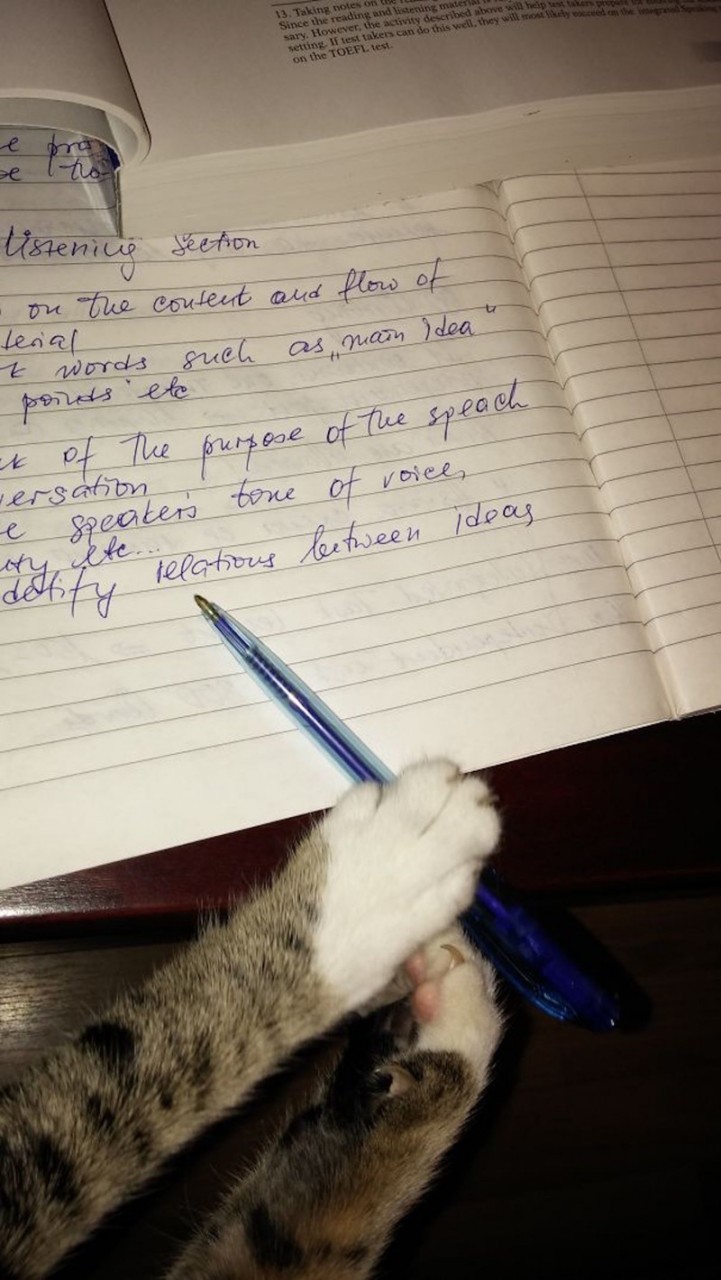 13. Taking notes on the
Since the reading and listening material is
sary. However, the activity described above will help test takers prepare for
setting. If test takers can do this well, they will most likely succeed on the integrated Speaking
on the TOEFL test.
e pro
se
listening section
on the content and flow of
terial
words such as „main idea"
points etc
of the purpose of the speach
versation
e speaker's tone of voice,
etc...
identify relations between ideas